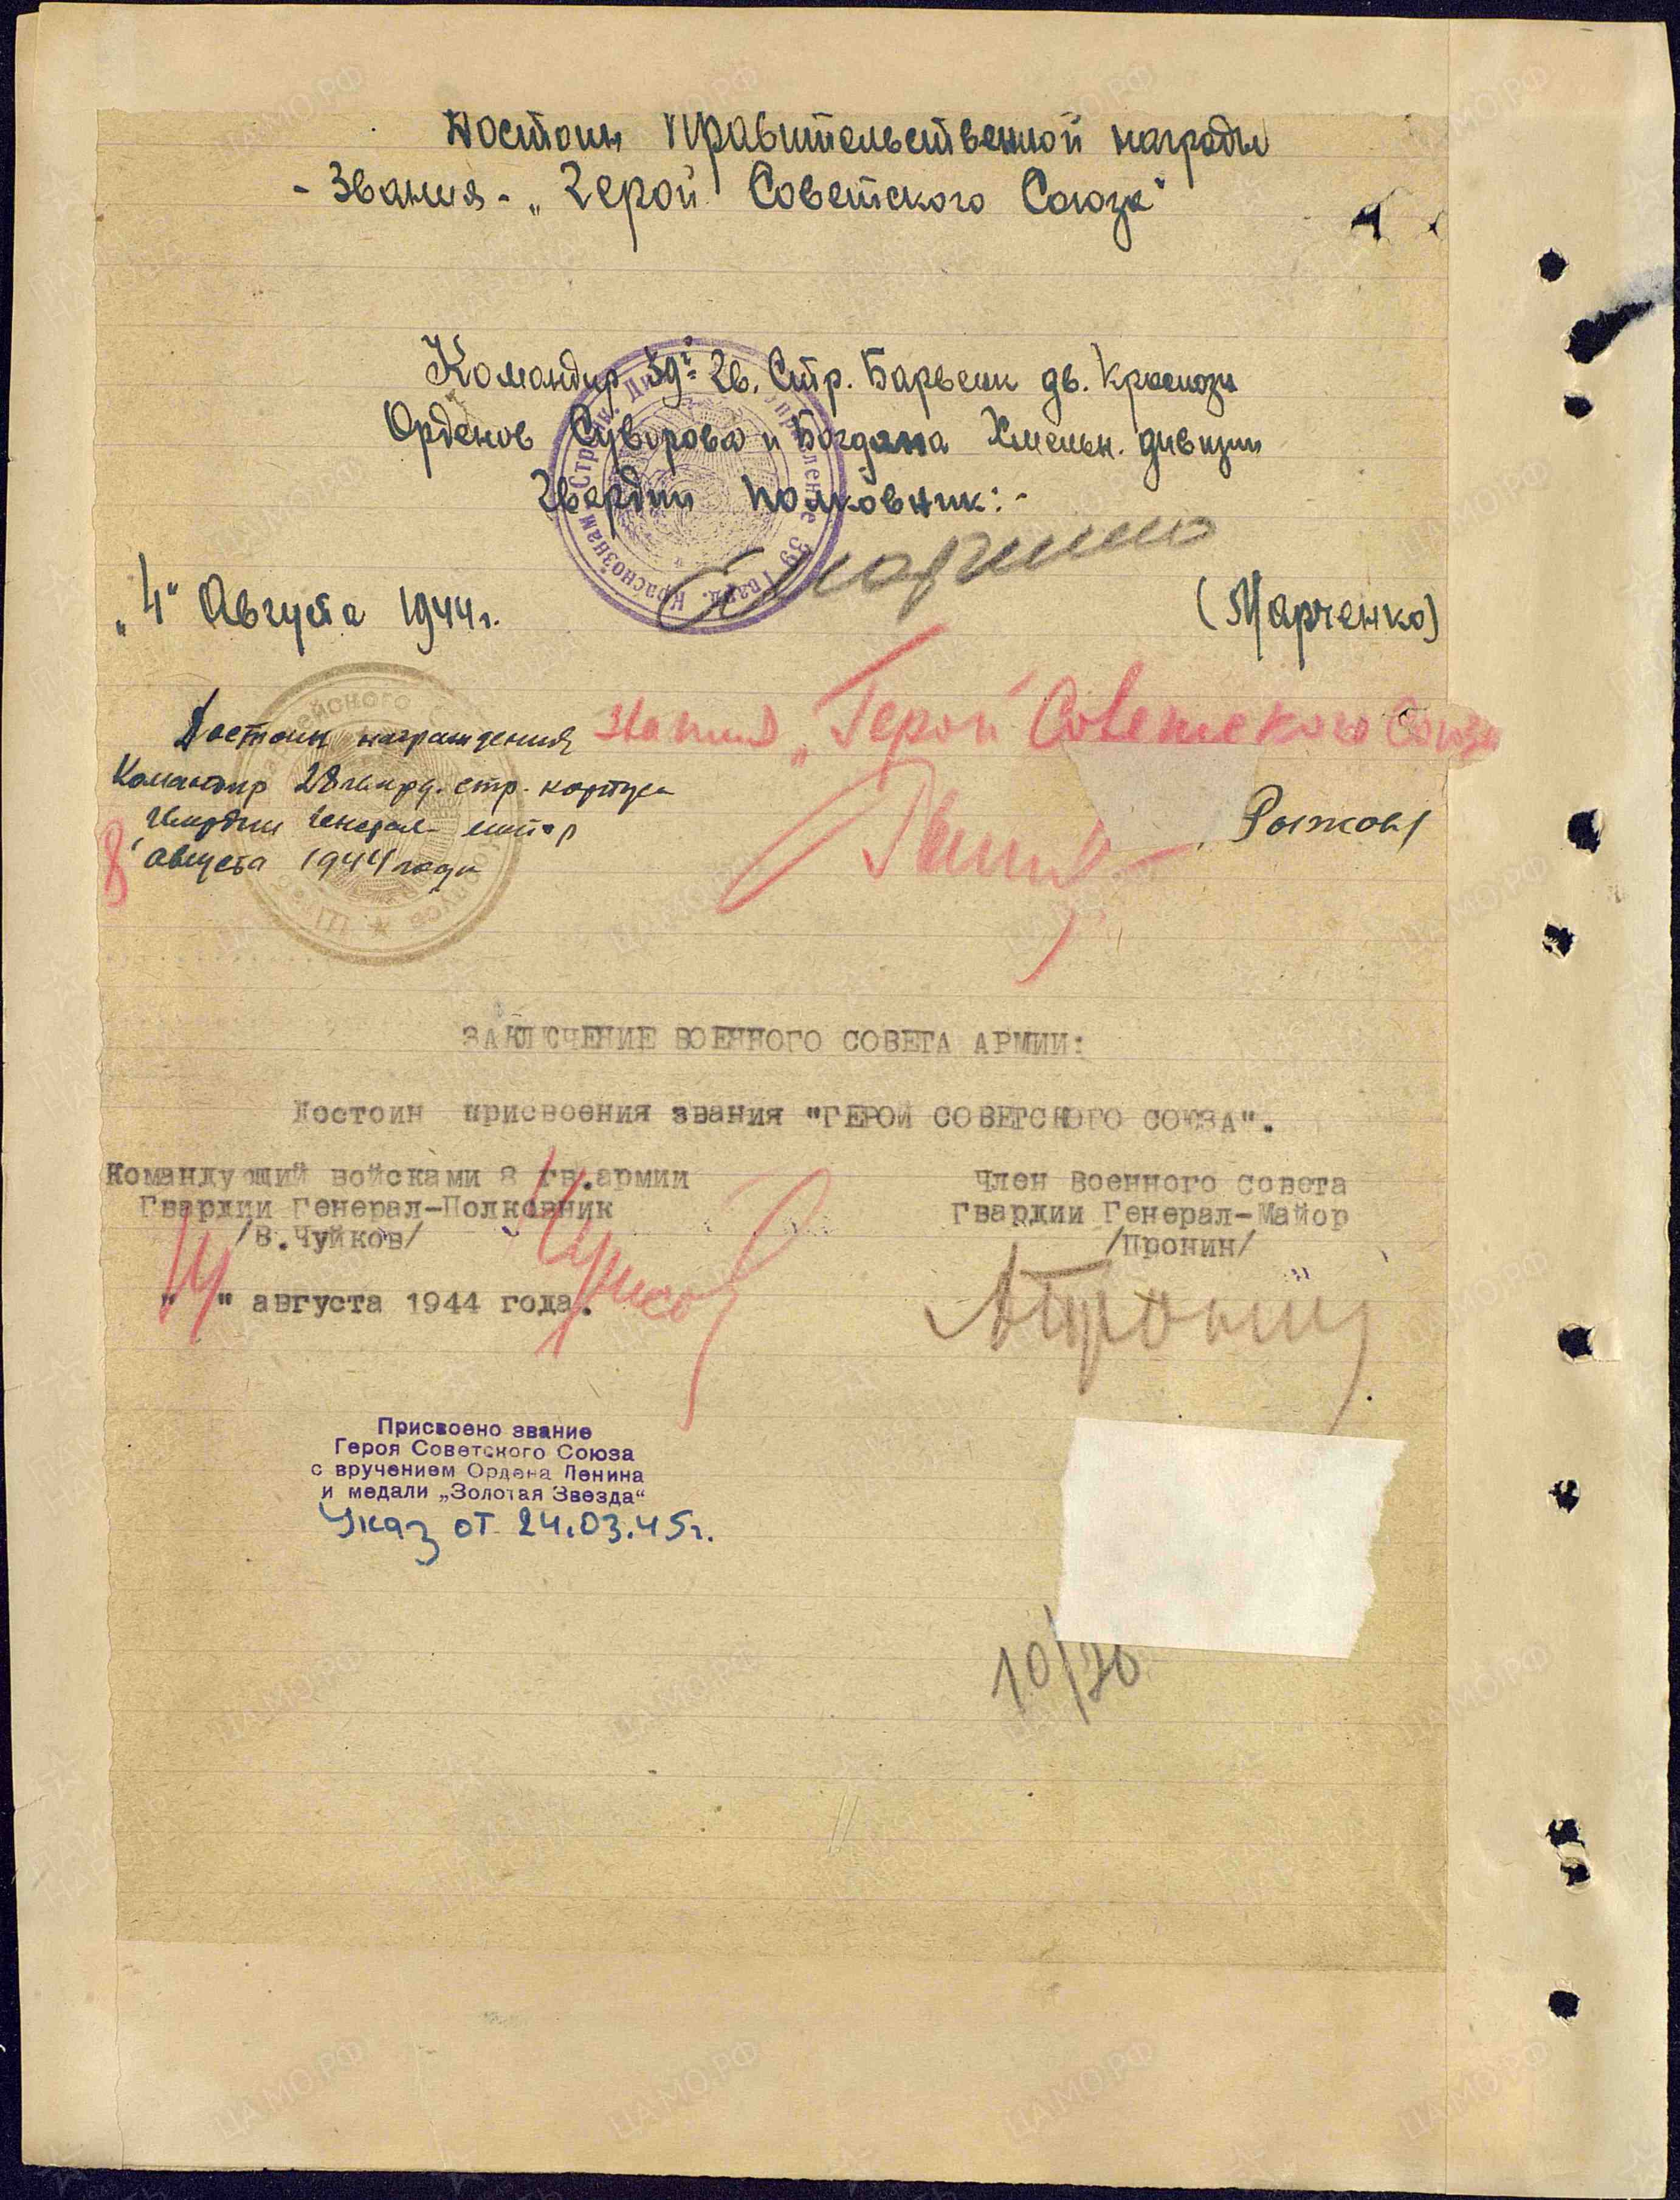 Достоин Правительственной награды
- Звания - „Герой Советского Союза"
Командир 39й Гв. Стр. Барвенк дв. Краснозн
Орденов Суворова и Богдана Хмельн. дивизии
Гвардии полковник:-
„4" Августа 1944г.
(Марченко)
Достоин награждения звания „Герой Советского Союза
Командир 28 гвард. стр. корпуса
Гвардии Генерал-майор
Рыжов/
8 августа 1944 года
ЗАКЛЮЧЕНИЕ ВОЕННОГО СОВЕТА АРМИИ:
Достоин присвоения звания "ГЕРОЙ СОВЕТСКОГО СОЮЗА".
Командующий войсками 8 гв.армии
Гвардии Генерал-Полковник
/В.Чуйков/
Член Военного Совета
Гвардии Генерал-Майор
/Пронин/
"14" августа 1944 года.
Чуйков
АПронин
Присвоено звание
Героя Советского Союза
с вручением Ордена Ленина
и медали „Золотая Звезда"
Указ от 24.03.45г.
10/26